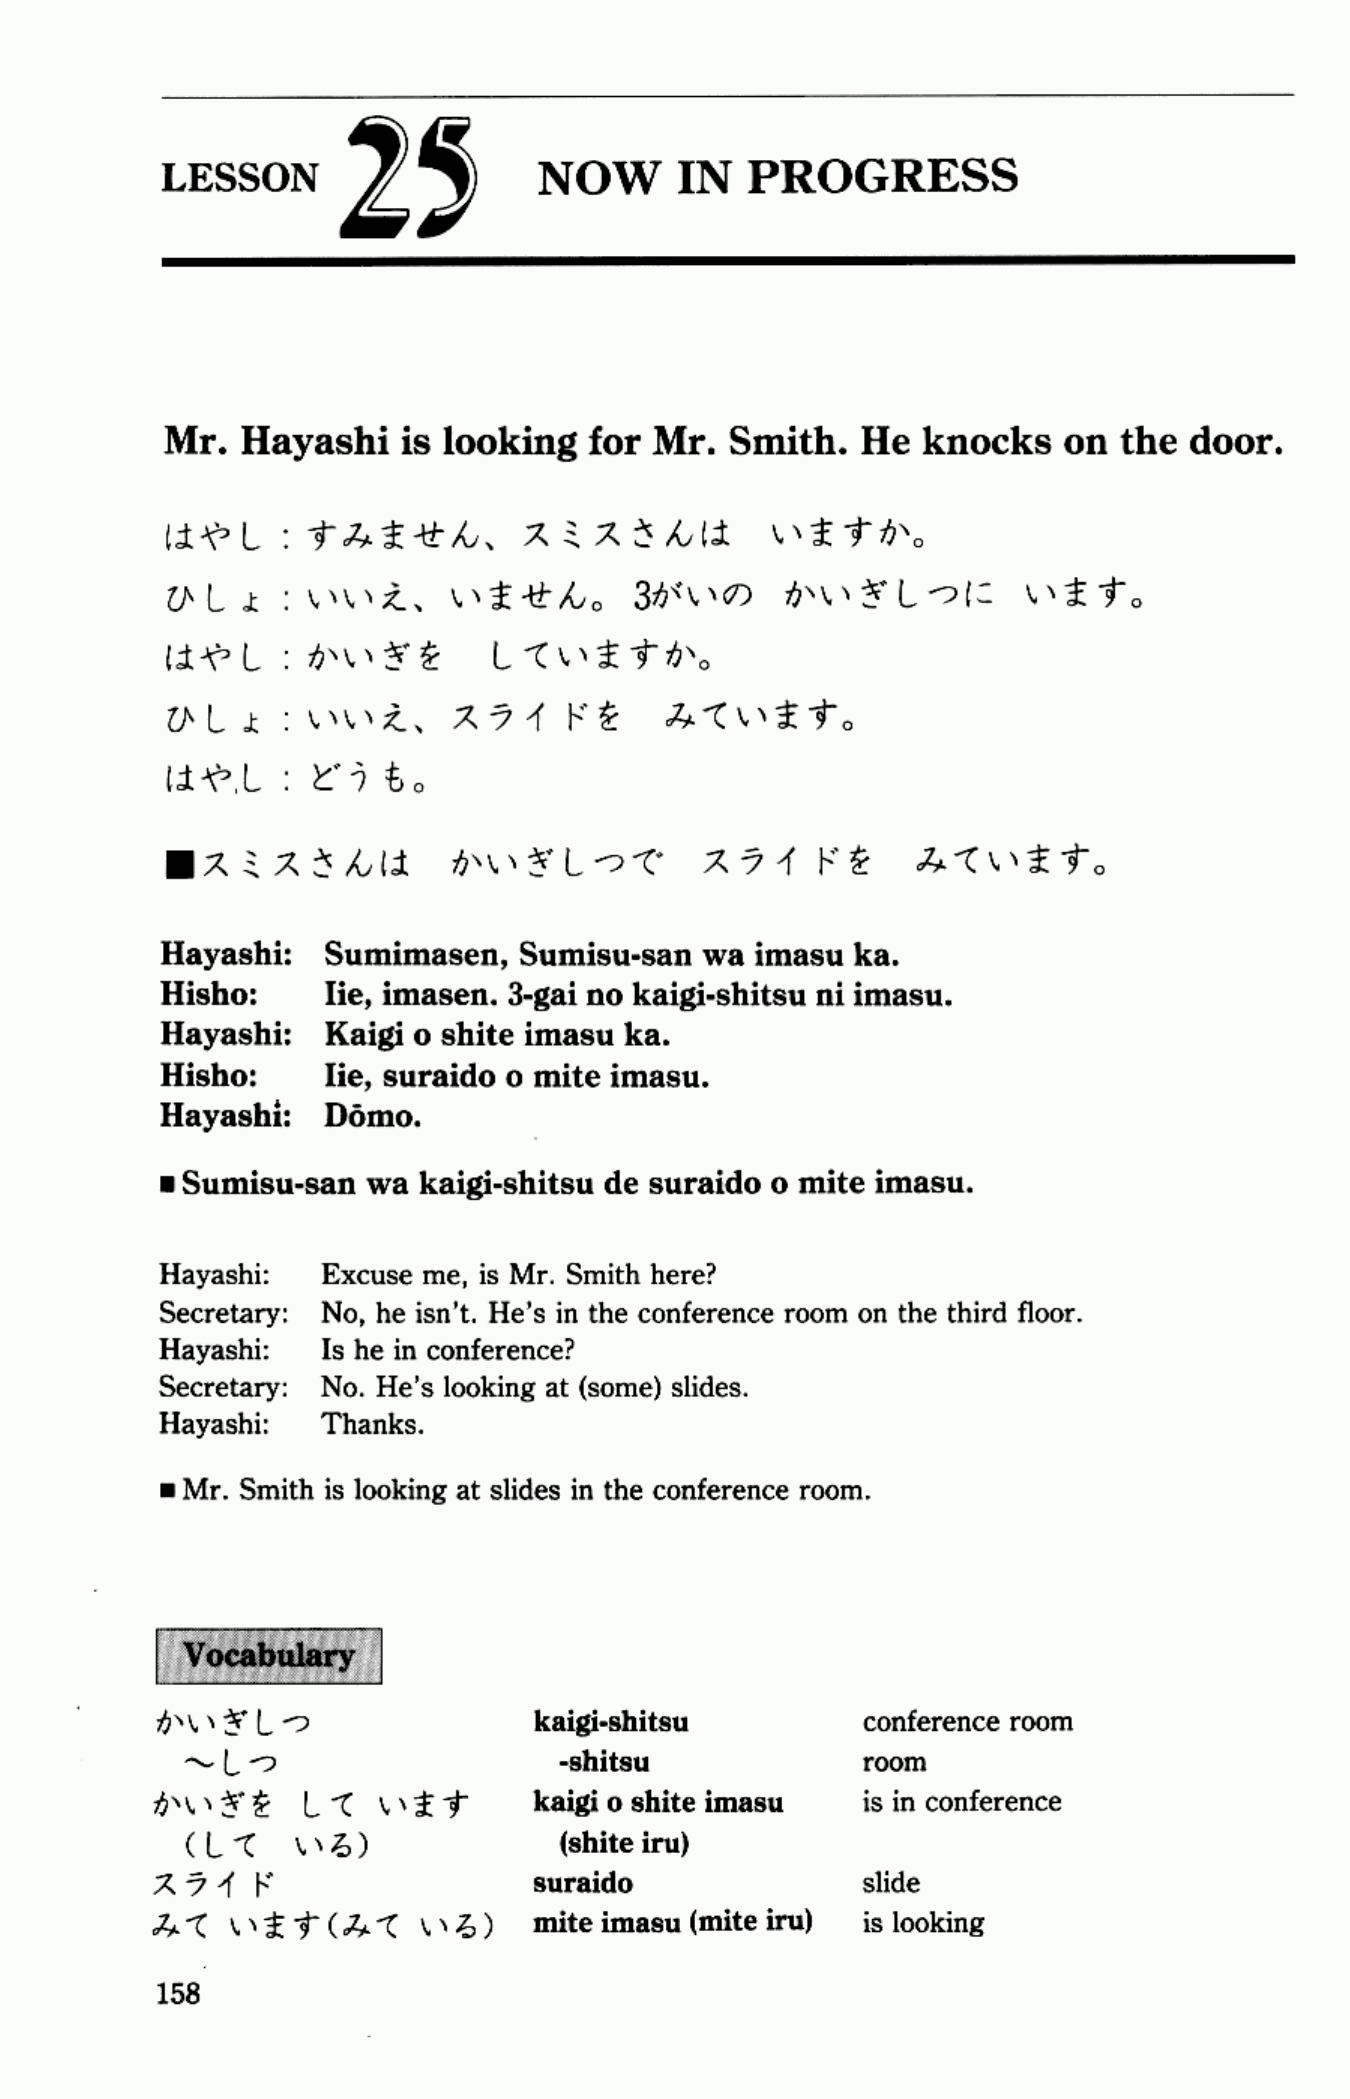 LESSON 25 NOW IN PROGRESS
Mr. Hayashi is looking for Mr. Smith. He knocks on the door.
はやし：すみません、スミスさんは　いますか。
ひしょ：いいえ、いません。3がいの　かいぎしつに　います。
はやし：かいぎを　していますか。
ひしょ：いいえ、スライドを　みています。
はやし：どうも。
■スミスさんは　かいぎしつで　スライドを　みています。
Hayashi: Sumimasen, Sumisu-san wa imasu ka.
Hisho: Iie, imasen. 3-gai no kaigi-shitsu ni imasu.
Hayashi: Kaigi o shite imasu ka.
Hisho: Iie, suraido o mite imasu.
Hayashi: Dōmo.
■ Sumisu-san wa kaigi-shitsu de suraido o mite imasu.
Hayashi: Excuse me, is Mr. Smith here?
Secretary: No, he isn't. He's in the conference room on the third floor.
Hayashi: Is he in conference?
Secretary: No. He's looking at (some) slides.
Hayashi: Thanks.
■ Mr. Smith is looking at slides in the conference room.
Vocabulary
かいぎしつ kaigi-shitsu conference room
～しつ -shitsu room
かいぎを して います kaigi o shite imasu is in conference
(して いる) (shite iru)
スライド suraido slide
みて います(みて いる) mite imasu (mite iru) is looking
158